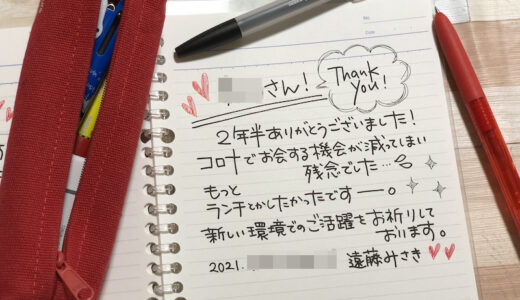 さん!
Thank you!
2年半ありがとうございました!
コロナでお会する機会が減ってしまい
残念でした…
もっと
ランチとかしたかったですー。
新しい環境でのご活躍をお祈りして
おります。
2021. 遠藤みさき